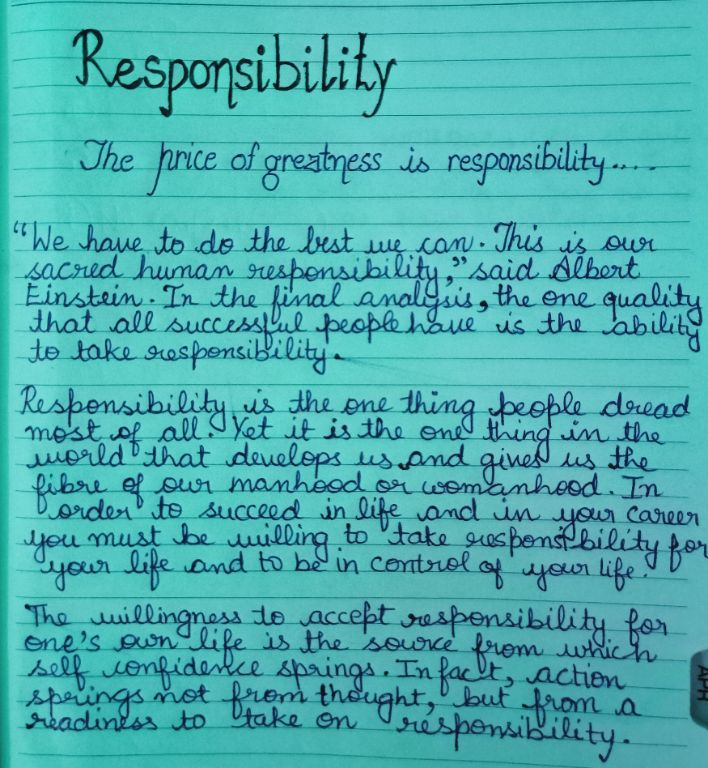 Responsibility
The price of greatness is responsibility....
"We have to do the best we can. This is our
sacred human responsibility," said Albert
Einstein. In the final analysis, the one quality
that all successful people have is the ability
to take responsibility.
Responsibility is the one thing people dread
most of all. Yet it is the one thing in the
world that develops us and gives us the
fibre of our manhood or womanhood. In
order to succeed in life and in your career
you must be willing to take responsibility for
your life and to be in control of your life.
The willingness to accept responsibility for
one's own life is the source from which
self confidence springs. In fact, action
springs not from thought, but from a
readiness to take on responsibility.